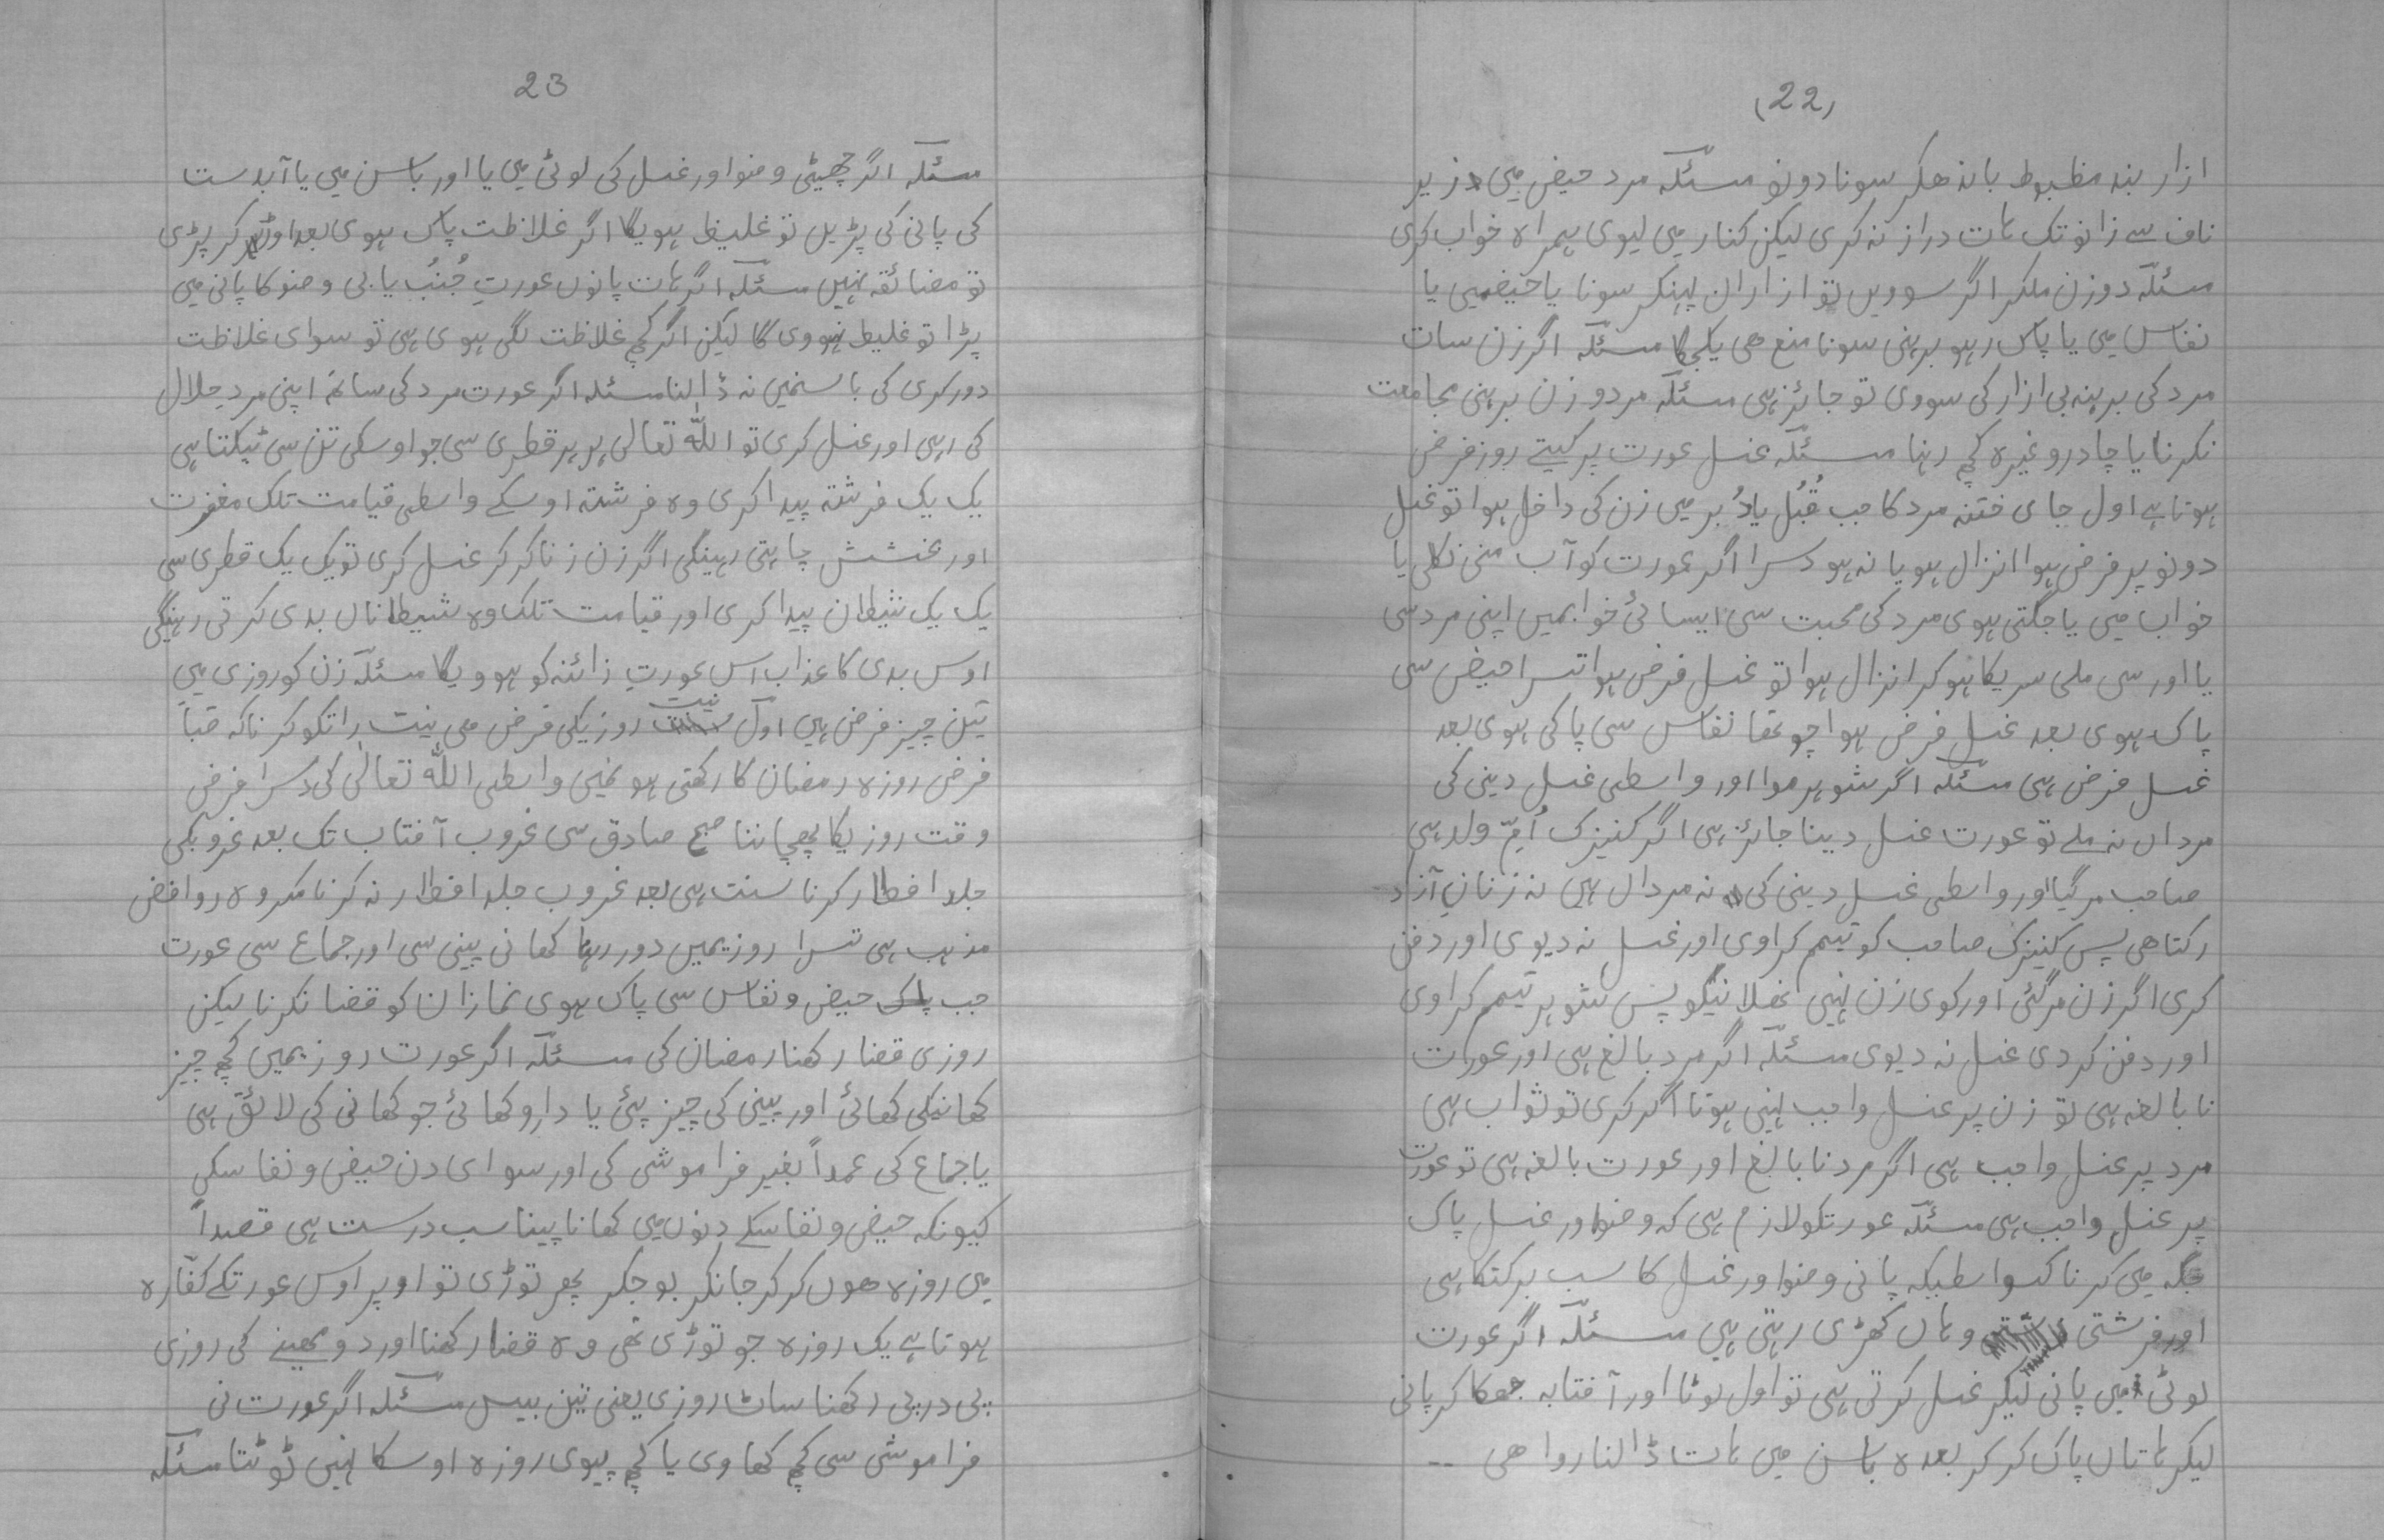 (22)
ازار بند مظبوط باندھکر سونا دونو مسئلہ مرد حیض میں زیر
ناف سے زانو تک ہات دراز نہ کری لیکن کنار میں لیوی ہمراہ خواب کری
مسئلہ دو زن ملکر اگر سوویں تو ازاران پہنکر سونا یا حیضمیں یا
نفاس میں یا پاک رہو برہنی سونا منع ھی یکجگا مسئلہ اگر زن سات
مرد کی برہنہ بی ازار کی سووی تو جائز ہی مسئلہ مرد و زن برہنی مجامعت
نکرنا یا چادر وغیرہ کچ رہنا مسئلہ غسل عورت پر کیتے روز فرض
ہوتا ہے اول جای ختنہ مرد کا جب قُبُل یا دُبر میں زن کی داخل ہوا تو غسل
دونو پر فرض ہوا انزال ہو یا نہ ہو دسرا اگر عورت کو آب منی نکلی یا
خواب میں یا جگتی ہوی مرد کی محبت سی ایسائی خوابمیں اپنی مرد سی
یا اور سی ملی سریکا ہو کر انزال ہوا تو غسل فرض ہوا تسرا حیض سی
پاک ہوی بعد غسل فرض ہوا چوتھا نفاس سی پاکی ہوی بعد
غسل فرض ہی مسئلہ اگر شوہر موا اور واسطی غسل دینی کی
مرداں نہ ملے تو عورت غسل دینا جائز ہی اگر کنیزک اُمِّ ولد ہی
صاحب مر گیا اور واسطی غسل دینی کی نہ مرداں ہیں نہ زنانِ آزاد
رکتا ھی پس کنیزک صاحب کو تیمم کراوی اور غسل نہ دیوی اور دفن
کری اگر زن مر گئی اور کوی زن نہیں نھلانیکو پس شوہر تیمم کراوی
اور دفن کر دی غسل نہ دیوی مسئلہ اگر مرد بالغ ہی اور عورت
نا بالغہ ہی تو زن پر غسل واجب نہیں ہوتا اگر کری تو ثواب ہی
مرد پر غسل واجب ہی اگر مرد نابالغ اور عورت بالغہ ہی تو عورت
پر غسل واجب ہی مسئلہ عورتکو لازم ہی کہ وضو اور غسل پاک
جگہ میں کرنا کسواسطیکہ پانی وضو اور غسل کا سب برکتکا ہی
اور فرشتی وہاں کھڑی رہتی ہیں مسئلہ اگر عورت
لوٹی میں پانی لیکر غسل کرتی ہی تو اول لوٹا اور آفتابہ جھکا کر پانی
لیکر ہاتاں پاک کر کر بعدہ باسن میں ہات ڈالنا روا ھی --
23
مسئلہ اگر چھیٹی وضو اور غسل کی لوٹی میں یا اور باسن میں یا آبدست
کی پانی کی پڑیں تو غلیظ ہویگا اگر غلاظت پاک ہوی بعد اوڑ کر پڑی
تو مضائقہ نہیں مسئلہ اگر ہات پانوں عورتِ جُنُب یا بی وضو کا پانی میں
پڑا تو غلیظ نہووی گا لیکن اگر کچ غلاظت لگی ہوی ہی تو سوای غلاظت
دور کری کی باسنمیں نہ ڈالنا مسئلہ اگر عورت مرد کی ساتھ اپنی مرد حلال
کی رہی اور غسل کری تو اللہ تعالی ہر ہر قطری سی جو اوسکی تن سی ٹپکتا ہی
یک یک فرشتہ پیدا کری وہ فرشتہ اوسکے واسطی قیامت تلک مغفرت
اور بخشش چاہتی رہینگی اگر زن زنا کر کر غسل کری تو یک یک قطری سی
یک یک شیطان پیدا کری اور قیامت تلک وہ شیطاناں بدی کرتی رہینگی
اوس بدی کا عذاب اس عورتِ زانئہ کو ہوویگا مسئلہ زن کو روزی میں
تین چیز فرض ہیں اول نیت روزیکی فرض می نیت راتکو کرنا کہ صُباَ
فرض روزہ رمضان کا رکھتی ہو نمیں واسطی اللہ تعالٰی کی دسرا فرض
وقت روزیکا پچھاننا صبح صادق سی غروب آفتاب تک بعد غروبکی
جلد افطار کرنا سنت ہی بعد غروب جلد افطار نہ کرنا مکروہ روافض
مذہب ہی تسرا روزیمیں دور رہنا کھانی پینی سی اور جماع سی عورت
جب حیض و نفاس سی پاک ہوی نمازان کو قضا نکرنا لیکن
روزی قضا رکھنا رمضان کی مسئلہ اگر عورت روزیمیں کچ چیز
کھانیکی کھائی اور پینی کی چیز پئی یا دارو کھائی جو کھانی کی لائق ہی
یا جماع کی عمداً بغیر فراموشی کی اور سوای دن حیض و نفاسکی
کیونکہ حیض و نفاسکے دنوں میں کھانا پینا سب درست ہی قصداً
میں روزہ ھوں کر کر جانکر بوجکر پھر توڑی تو اوپر اوس عورتکے کفّارہ
ہوتا ہے یک روزہ جو توڑی تھی وہ قضا رکھنا اور دو مھینے کی روزی
پی در پی رکھنا ساٹ روزی یعنی تین بیس مسئلہ اگر عورت نی
فراموشی سی کچ کھاوی یا کچ پیوی روزہ اوسکا نہیں ٹوٹتا مسئلہ